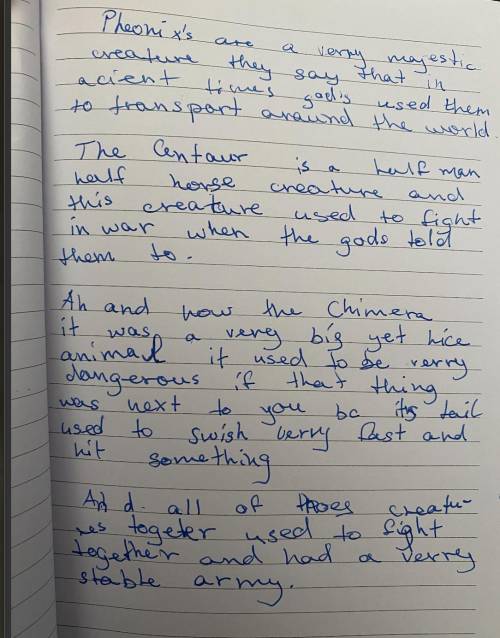 Pheonix's are a verry majestic
creature they say that in
acient times god's used them
to transport araund the world.
The Centaur is a half man
half horse creature and
this creature used to fight
in war when the gods told
them to.
Ah and now the Chimera
it was a very big yet nice
animal it used to be verry
dangerous if that thing
was next to you bc its tail
used to swish verry fast and
hit something
And all of thoes creatu-
res togeter used to fight
together and had a verry
stable army.